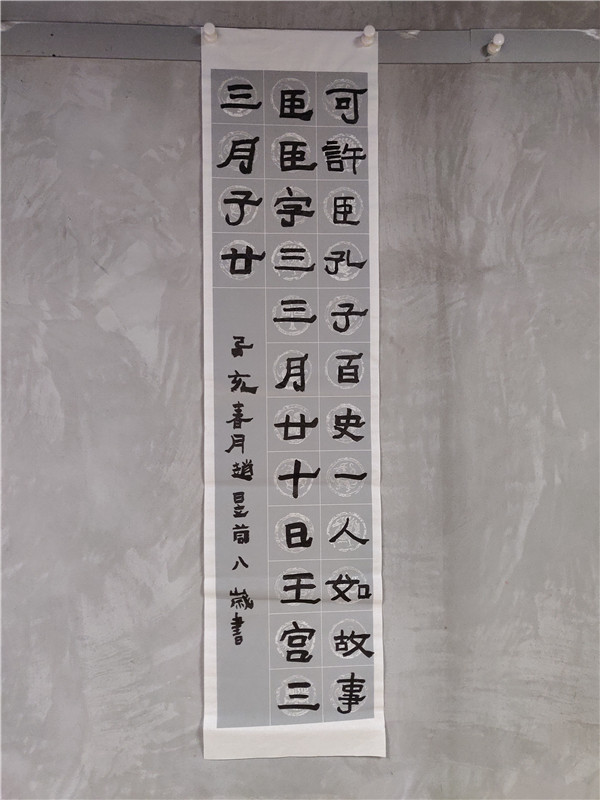 可許臣孔子百史一人如故事
臣臣字三三月廿十日王宫三
三月子廿
亥春月趙昱前八歲書